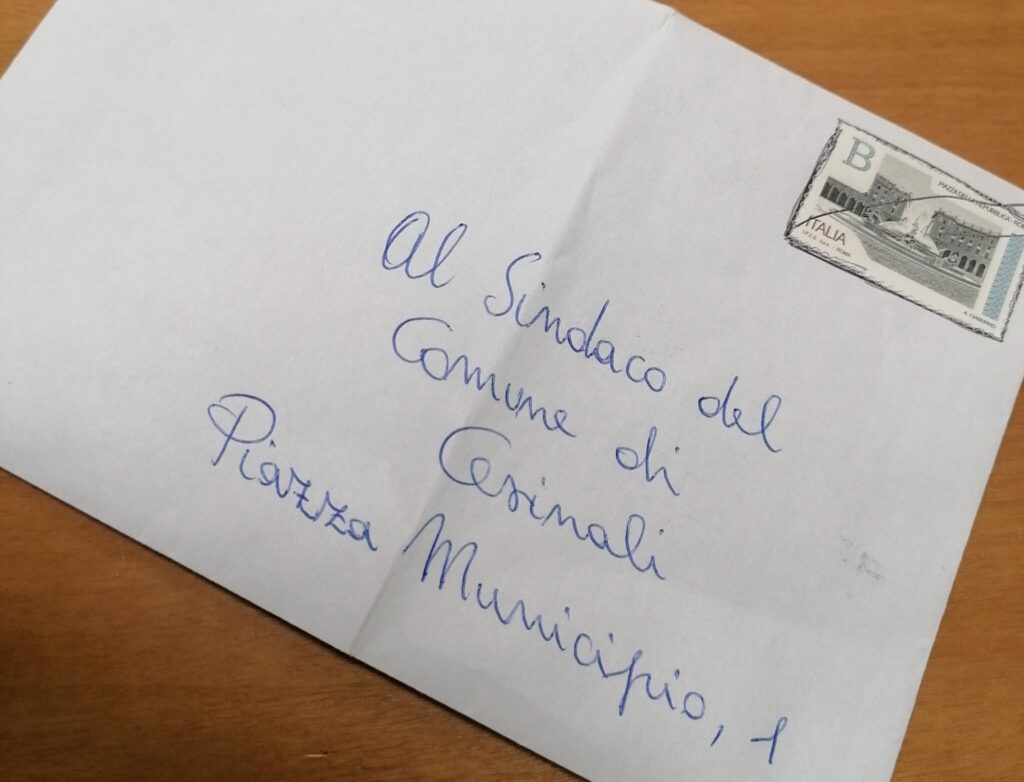 B
PIAZZA DELLA REPUBBLICA - ROMA
ITALIA
I.P.Z.S. S.p.A. - ROMA
A. CIABURRO
Al Sindaco del
Comune di
Cesinali
Piazza Municipio, 1